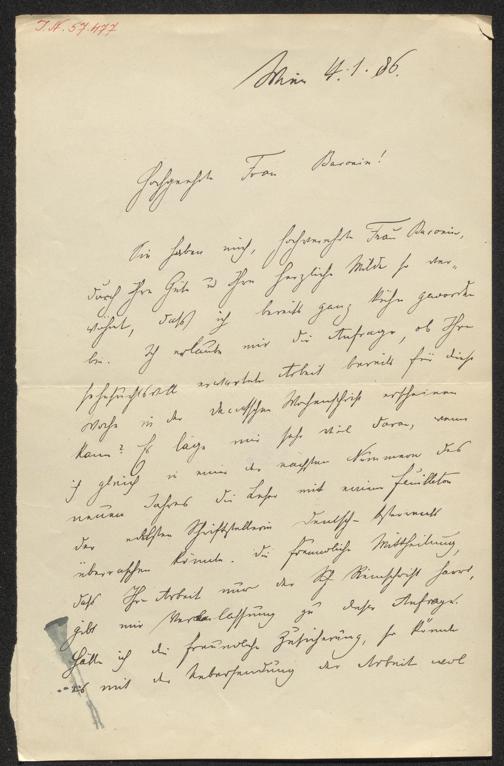 I.N. 57.477
Wien 4.1.86.
Hochgeehrte Frau Baronin!
Sie haben mich, hochverehrte Frau Baronin,
durch Ihre Güte u Ihre herzliche Milde so ver-
wöhnt, dass ich bereits ganz kühn geworden
bin. Ich erlaube mir die Anfrage, ob Ihre
sehnsuchtsvoll erwartete Arbeit bereits für diese
Woche in der Deutschen Wochenschrift erscheinen
kann? Es läge mir sehr viel daran, wenn
ich gleich in einer der nächsten Nummern des
neuen Jahres die Leser mit einem Feuilleton
der edelsten Schriftstellerin Deutsch-Österreichs
überraschen könnte. Die freundliche Mittheilung,
dass Ihre Arbeit nur der Reinschrift harrt,
gibt mir Veranlassung zu dieser Anfrage.
Hätte ich die freundliche Zusicherung, so könnte
es mit der Uebersendung der Arbeit wol